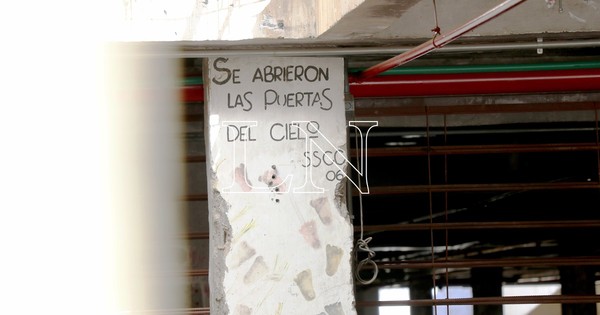 SE ABRIERON
LAS PUERTAS
DEL CIELO
SSCC
06
LN